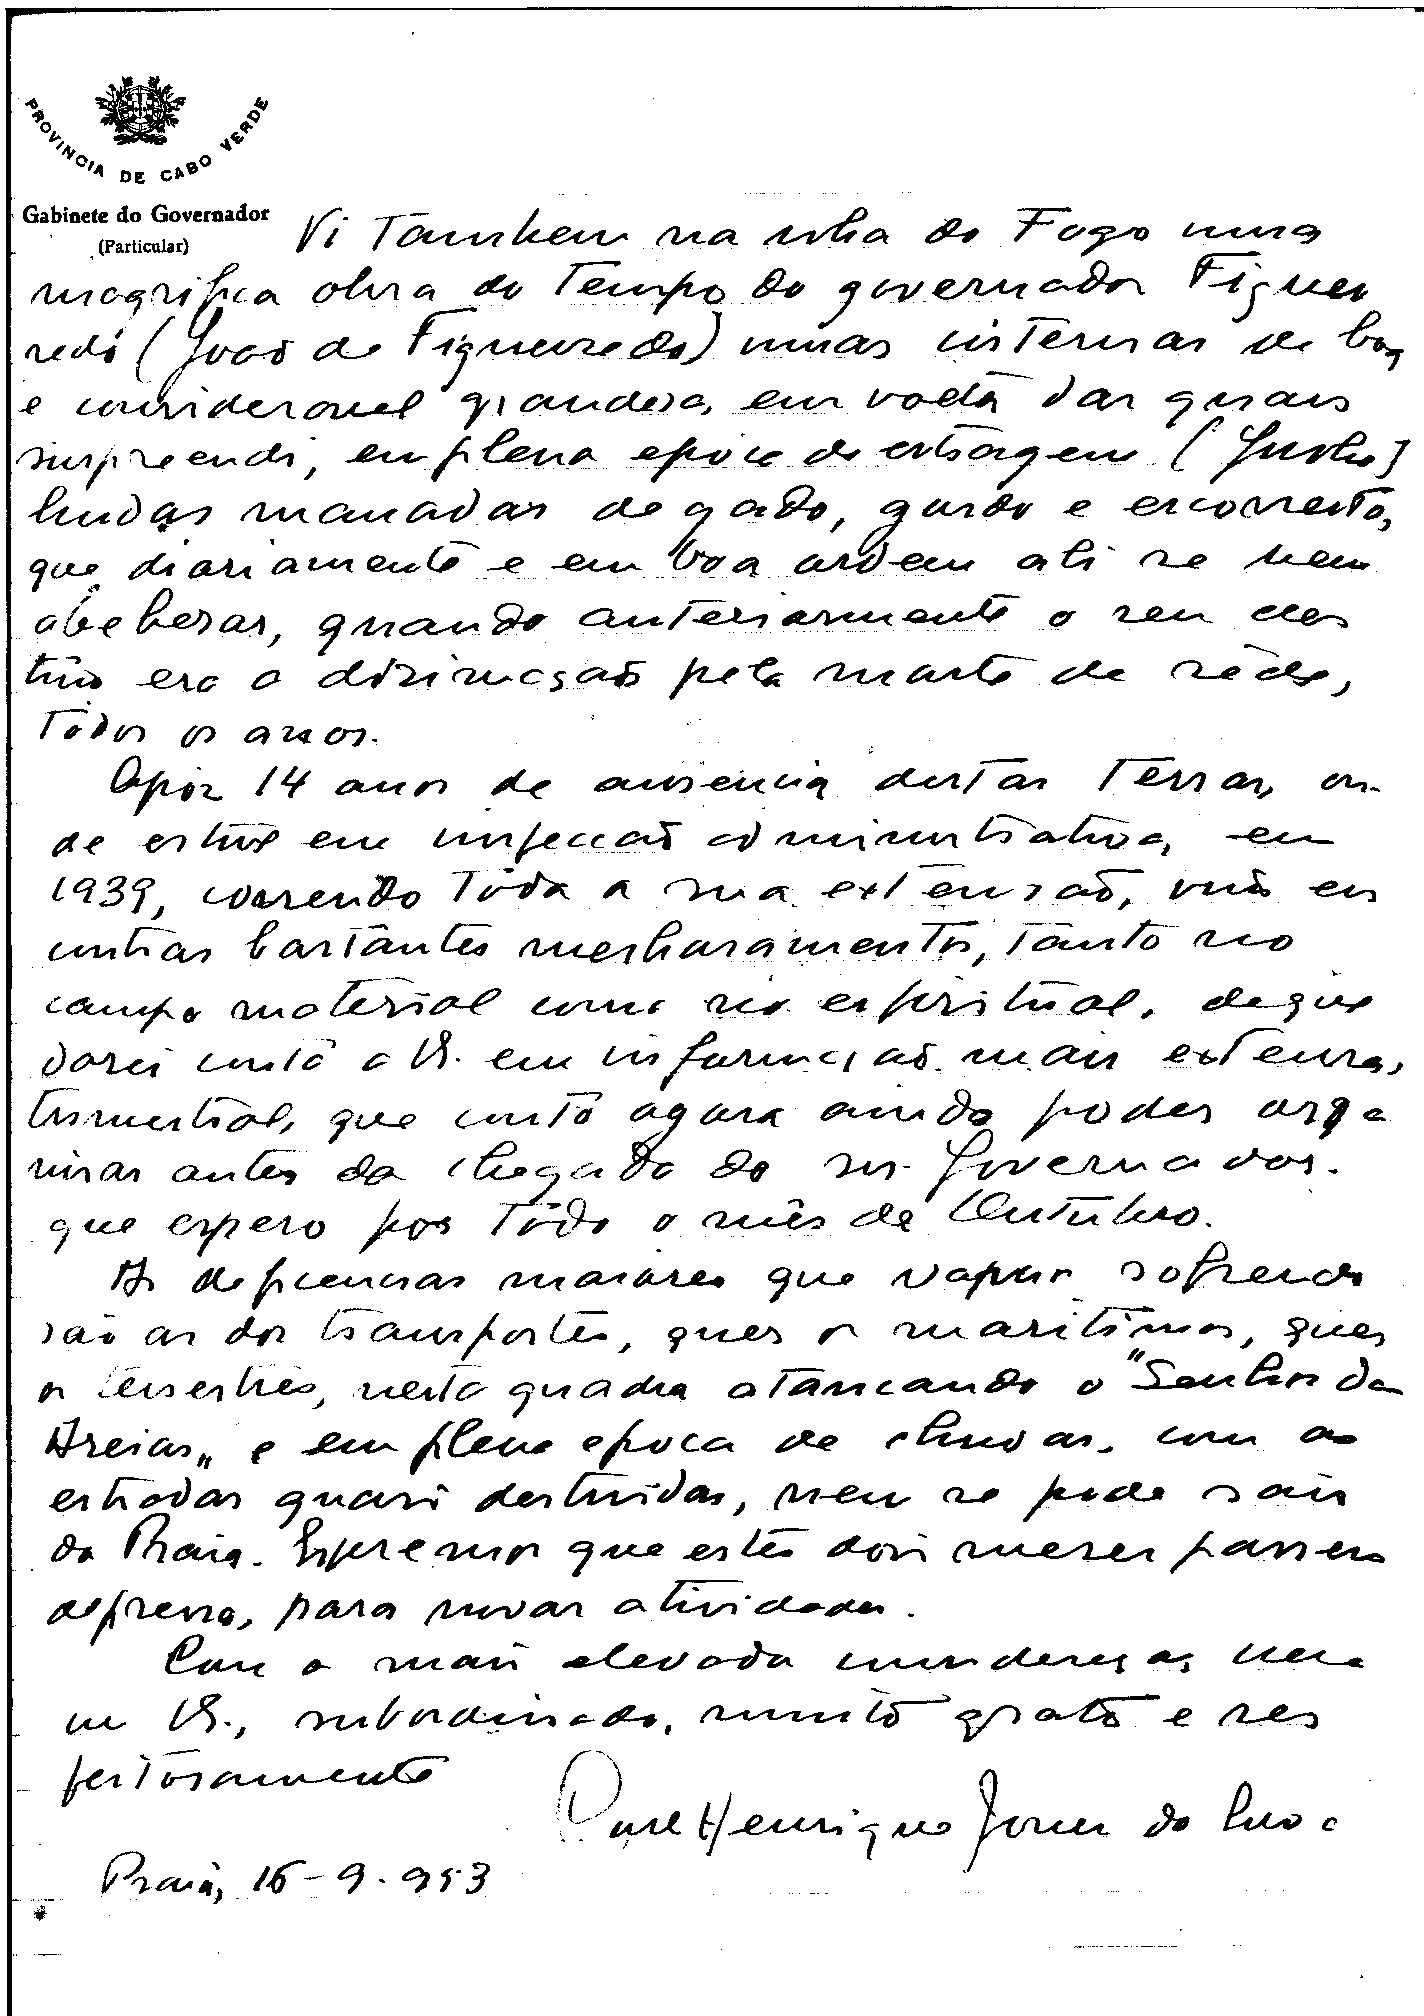 PROVINCIA DE CABO VERDE
Gabinete do Governador
(Particular)
Vi tambem na ilha do Fogo uma
magnifica obra do tempo do governador Figuei
redo (João de Figueiredo) umas cisternas de boa
e consideravel grandesa, em roda das quais
surpreendi, em plena epoca de estiagem (Junho)
lindas manadas de gado, gordo e escorreito,
que diariamente e em boa ordem ali se vem
abeberar, quando anteriormente o seu des
tino era a dizimação pela morte de sêde,
todos os anos.
Apóz 14 anos de ausencia destas terras, on
de estive em inspecção administrativa, em
1939, correndo tôda a sua extensão, vim en
contrar bastantes melhoramentos, tanto no
campo material como no espiritual, de que
darei conta a V. em informação mais extensa,
trimestral, que conto agora ainda poder orga
nisar antes da chegada do sr. Governador.
que espero por todo o mês de Outubro.
As deficiencias maiores que vamos sofrendo
são as dos transportes, quer os maritimos, quer
os terrestres, nesta quadra atancando o "Senhor das
Areias" e em plena epoca de chuvas, com as
estradas quasi destruidas, nem se pode sair
da Praia. Esperemos que estes dois meses passem
depressa, para novas atividades.
Com a mais elevada consideração,
V., subordinado, muito grato e res
peitosamente
Henrique
Praia, 16-9-953